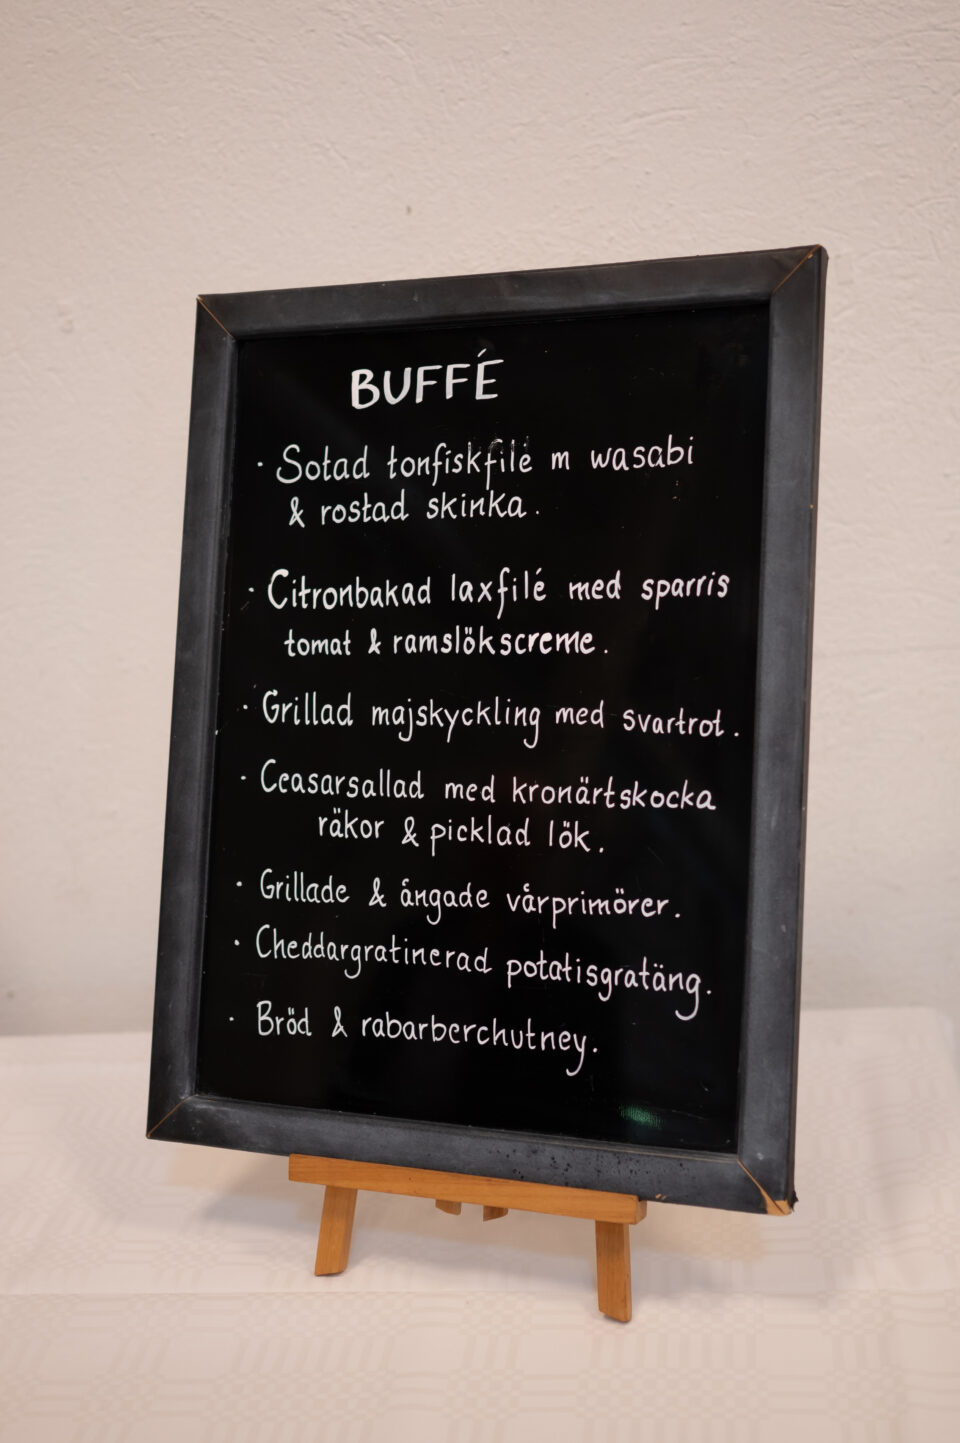 BUFFÉ
· Sotad tonfiskfilé m wasabi
& rostad skinka.
· Citronbakad laxfilé med sparris
tomat & ramslökscreme.
· Grillad majskyckling med svartrot.
· Ceasarsallad med kronärtskocka
räkor & picklad lök.
· Grillade & ångade vårprimörer.
· Cheddargratinerad potatisgratäng.
· Bröd & rabarberchutney.